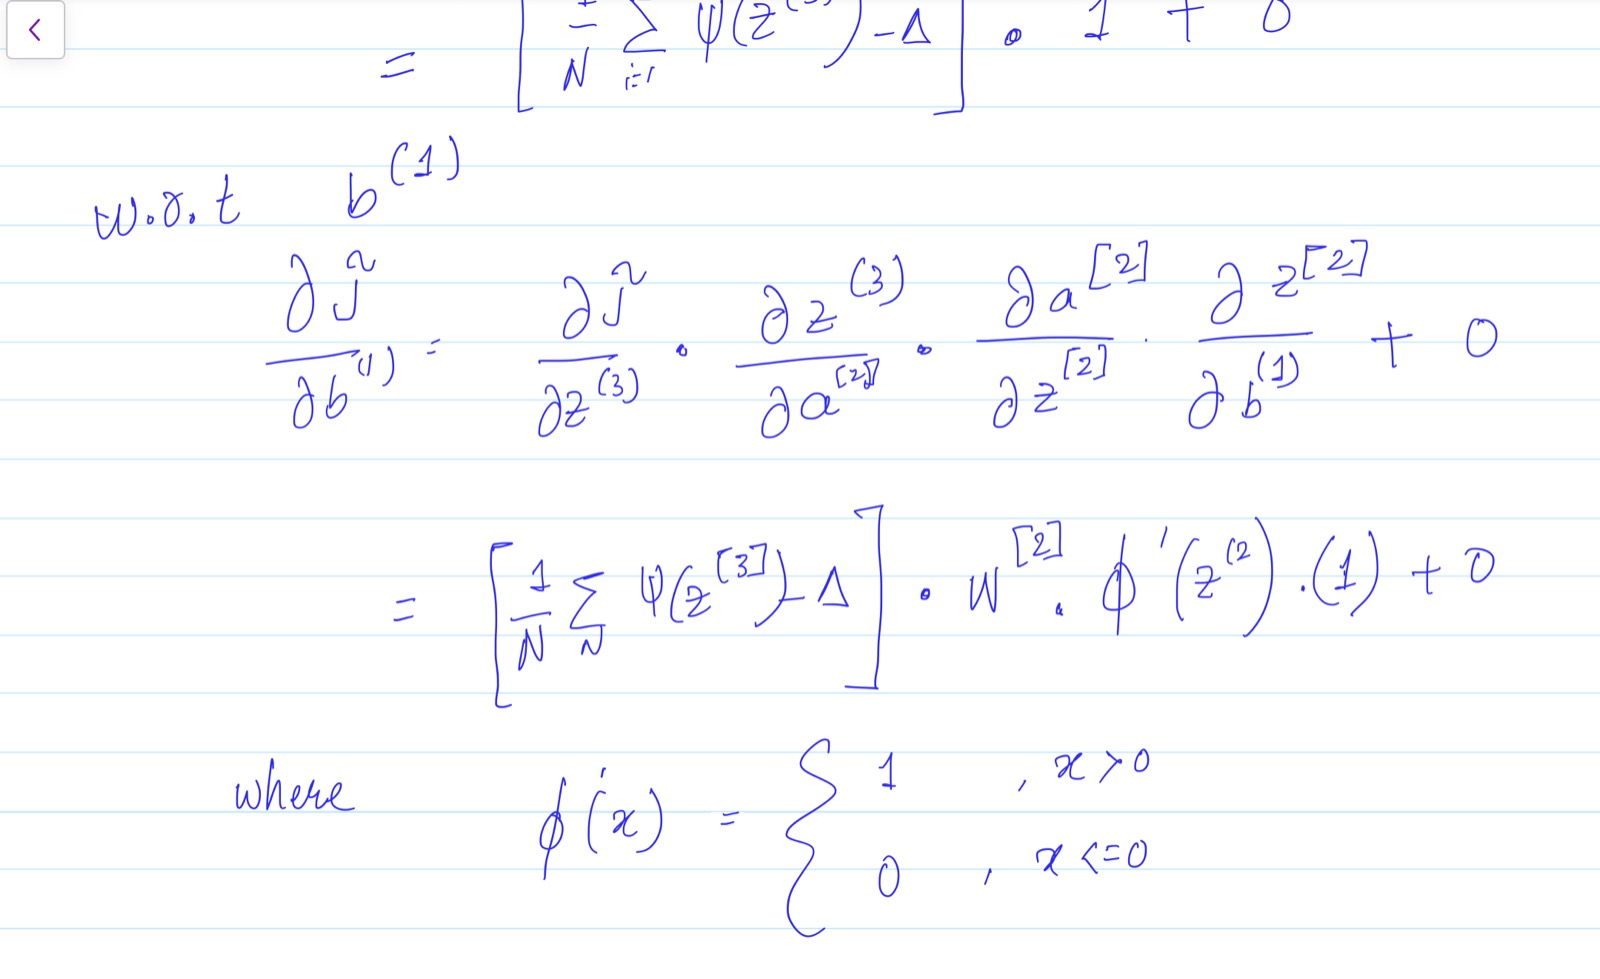 = [ 1/N Σ_{i=1} ψ(z^(3)) - Δ ] . 1 + 0
w.r.t b^(1)
∂J̃/∂b^(1) = ∂J̃/∂z^(3) . ∂z^(3)/∂a^[2] . ∂a^[2]/∂z^[2] . ∂z^[2]/∂b^(1) + 0
= [ 1/N Σ_N ψ(z^[3]) - Δ ] . W^[2] . ϕ'(z^(2) .(1) + 0
where ϕ'(x) = { 1 , x>0
0 , x<=0